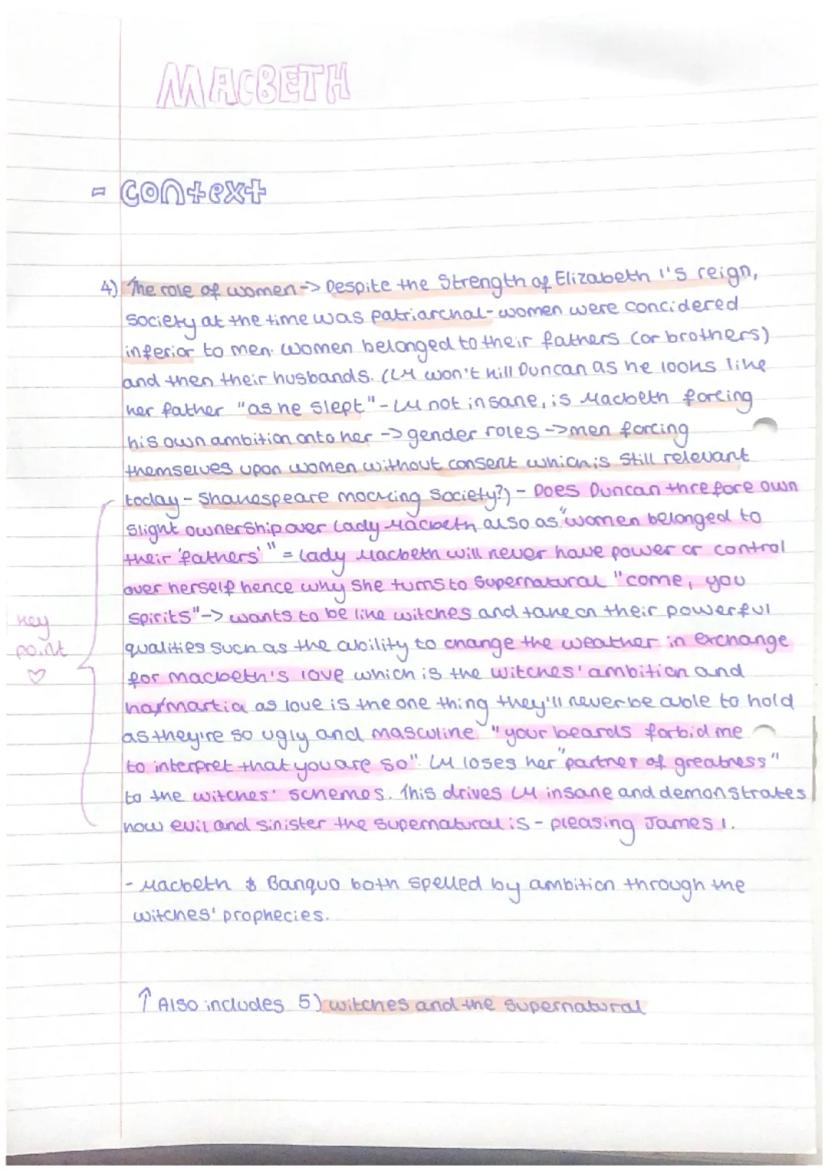 MACBETH
- Context
4) The role of women -> Despite the Strength of Elizabeth 1's reign,
society at the time was patriarchal - women were concidered
inferior to men. Women belonged to their fathers (or brothers)
and then their husbands. (LM won't kill Duncan as he looks like
her father "as he slept" - LM not insane, is Macbeth forcing
his own ambition onto her -> gender roles -> men forcing
themselves upon women without consent which is still relevant
today - Shakespeare mocking society?) - Does Duncan threfore own
slight ownership over Lady Macbeth also as "women belonged to
their 'fathers'" = Lady Macbeth will never have power or control
over herself hence why she turns to supernatural "come, you
spirits" -> wants to be like witches and take on their powerful
qualities such as the ability to change the weather in exchange
for Macbeth's love which is the witches' ambition and
key
point
♡
harmartia as love is the one thing they'll never be able to hold
as they're so ugly and masculine "your beards forbid me
to interpret that you are so". LM loses her "partner of greatness"
to the witches' schemes. This drives LM insane and demonstrates
how evil and sinister the supernatural is - pleasing James 1.
- Macbeth & Banquo both spelled by ambition through the
witches' prophecies.
↑ Also includes 5) witches and the supernatural